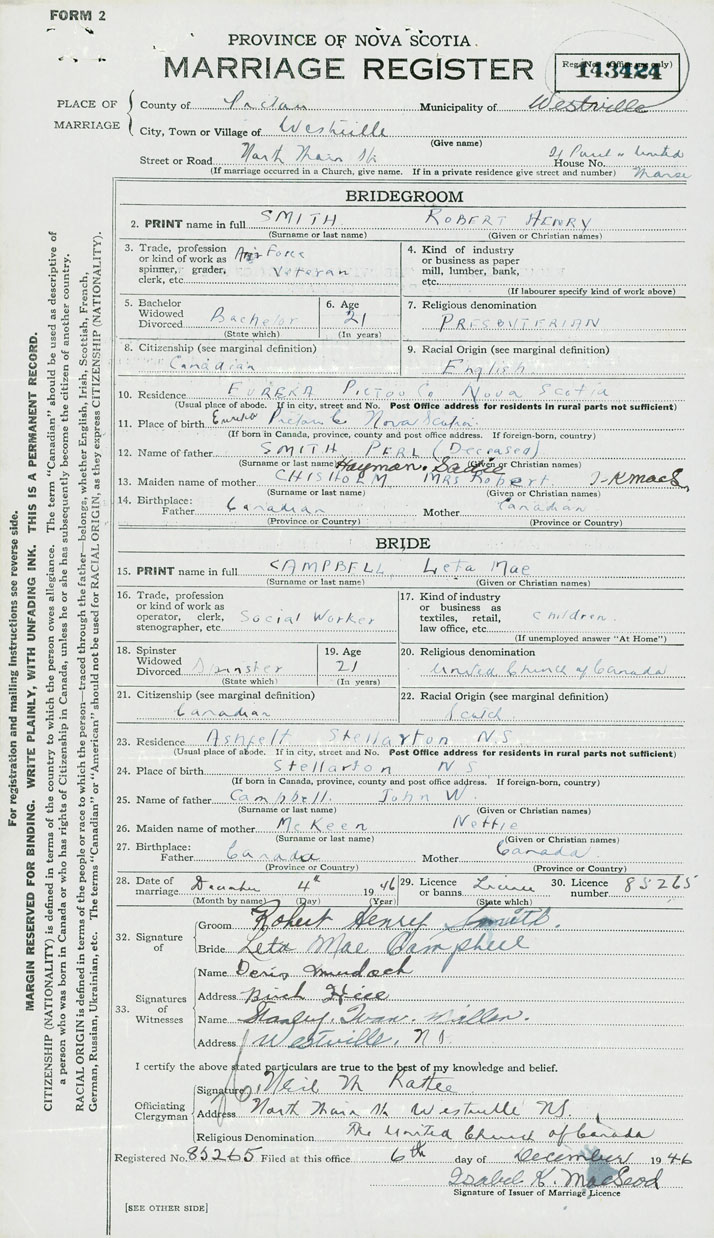 FORM 2
PROVINCE OF NOVA SCOTIA
MARRIAGE REGISTER
Reg. No. (Office use only)
143424
PLACE OF MARRIAGE
County of Pictou Municipality of Westville
City, Town or Village of Westville
(Give name)
Street or Road North Main St. House No. St Paul's United Manse
(If marriage occurred in a Church, give name. If in a private residence give street and number)
BRIDEGROOM
2. PRINT name in full SMITH ROBERT HENRY
(Surname or last name) (Given or Christian names)
3. Trade, profession or kind of work as spinner, grader, clerk, etc. Air Force Veteran
4. Kind of industry or business as paper mill, lumber, bank, etc.
(If labourer specify kind of work above)
5. Bachelor Widowed Divorced Bachelor
(State which)
6. Age 21
(In years)
7. Religious denomination
PRESBYTERIAN
8. Citizenship (see marginal definition)
Canadian
9. Racial Origin (see marginal definition)
English
10. Residence EUREKA PICTOU CO NOVA SCOTIA
(Usual place of abode. If in city, street and No. Post Office address for residents in rural parts not sufficient)
11. Place of birth Eureka Pictou Co Nova Scotia
(If born in Canada, province, county and post office address. If foreign-born, country)
12. Name of father SMITH PERL (Deceased)
(Surname or last name) (Given or Christian names)
Hayman. Sadie
13. Maiden name of mother CHISHOLM MRS Robert I-K MacL
(Surname or last name) (Given or Christian names)
14. Birthplace: Father Canadian Mother Canadian
(Province or Country) (Province or Country)
BRIDE
15. PRINT name in full CAMPBELL Leta Mae
(Surname or last name) (Given or Christian names)
16. Trade, profession or kind of work as operator, clerk, stenographer, etc. Social Worker
17. Kind of industry or business as textiles, retail, law office, etc. Children
(If unemployed answer "At Home")
18. Spinster Widowed Divorced Spinster
(State which)
19. Age 21
(In years)
20. Religious denomination
United Church of Canada
21. Citizenship (see marginal definition)
Canadian
22. Racial Origin (see marginal definition)
Scotch
23. Residence Stellarton N.S.
(Usual place of abode. If in city, street and No. Post Office address for residents in rural parts not sufficient)
24. Place of birth Stellarton N S
(If born in Canada, province, county and post office address. If foreign-born, country)
25. Name of father Campbell. John W.
(Surname or last name) (Given or Christian names)
26. Maiden name of mother McKeen Nottie
(Surname or last name) (Given or Christian names)
27. Birthplace: Father Canada Mother Canada
(Province or Country) (Province or Country)
28. Date of marriage December 4th 1946
(Month by name) (Day) (Year)
29. Licence or banns Licence
(State which)
30. Licence number 85265
32. Signature of
Groom Robert Henry Smith.
Bride Leta Mae Campbell
33. Signatures of Witnesses
Name Doris Murdoch
Address Birch Hill
Name Stanley Ivan. Millen.
Address Westville, N.S.
I certify the above stated particulars are true to the best of my knowledge and belief.
Officiating Clergyman
Signature Neil M Rattee
Address North Main St Westville N.S.
Religious Denomination The United Church of Canada
Registered No. 85265 Filed at this office 6th day of December 1946
Isabel K. MacLeod
Signature of Issuer of Marriage Licence
[SEE OTHER SIDE]
For registration and mailing instructions see reverse side.
MARGIN RESERVED FOR BINDING. WRITE PLAINLY, WITH UNFADING INK. THIS IS A PERMANENT RECORD.
CITIZENSHIP (NATIONALITY) is defined in terms of the country to which the person owes allegiance. The term "Canadian" should be used as descriptive of
a person who was born in Canada or who has rights of Citizenship in Canada, unless he or she has subsequently become the citizen of another country.
RACIAL ORIGIN is defined in terms of the people or race to which the person—traced through the father—belongs, whether English, Irish, Scottish, French,
German, Russian, Ukrainian, etc. The terms "Canadian" or "American" should not be used for RACIAL ORIGIN, as they express CITIZENSHIP (NATIONALITY).